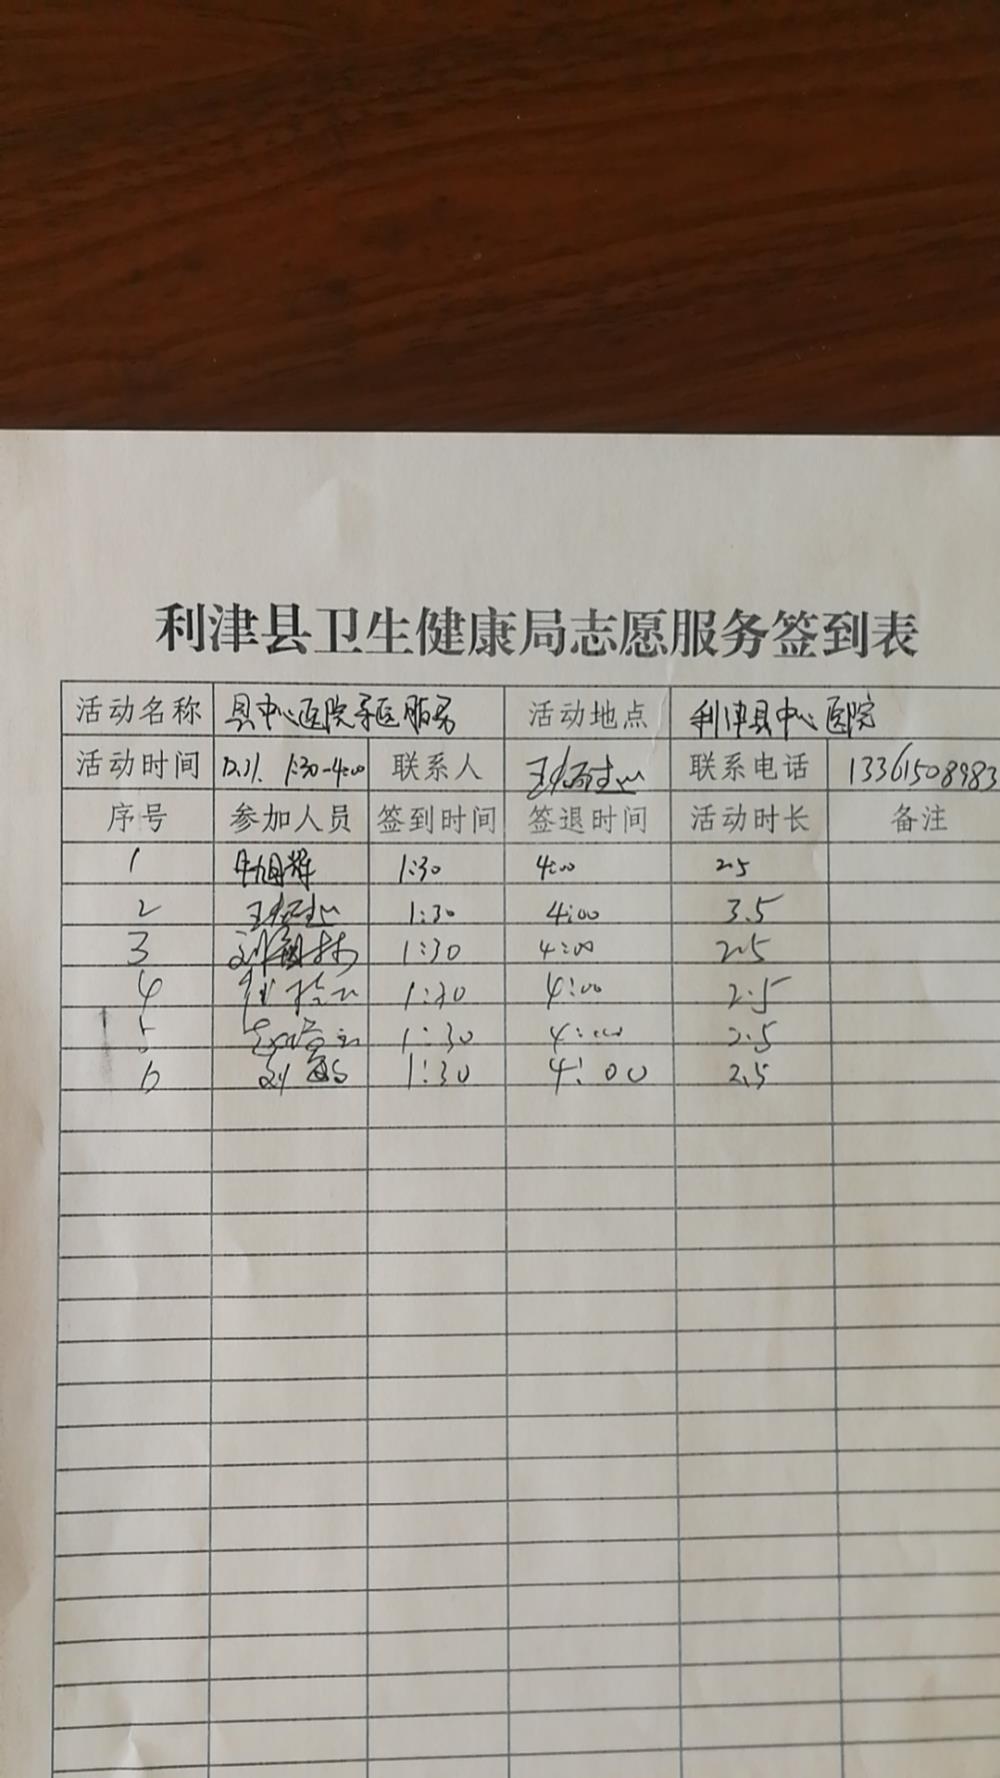 利津县卫生健康局志愿服务签到表
活动名称 县中心医院 服务 活动地点 利津县中心医院
活动时间 12.11. 1:30-4:00 联系人 联系电话 13361508983
序号 参加人员 签到时间 签退时间 活动时长 备注
1 1:30 4:00 2.5
2 1:30 4:00 3.5
3 1:30 4:00 2.5
4 1:30 4:00 2.5
5 1:30 4:00 2.5
6 刘 1:30 4:00 2.5